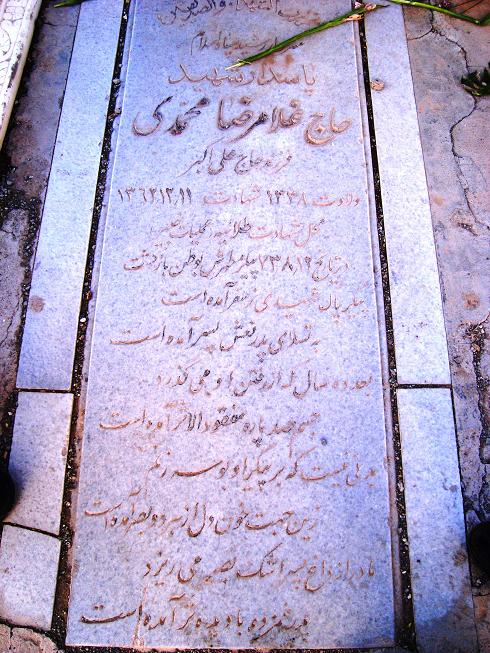 پاسدار شهید
حاج غلامرضا محمدی
فرزند حاج علی اکبر
ولادت ۱۳۳۸ شهادت ۱۳۶۲,۱۲,۱۱
محل شهادت طلائیه عملیات خیبر
در تاریخ ۷۳,۸,۱۹ پیکر مطهرش بوطن بازگشت
پیکر پاک شهیدی ز سفر آمده است
به تسلای پدر نعش پسر آمده است
بعد ده سال که از رفتن او می گذرد
جسم صد پاره مفقود الاثر آمده است
بدنی نیست که بر پیکر او بوسه زنم
زین جهت خون دل از هر دو بصر آمده است
مادر از داغ پسر اشک بصر می ریزد
پدر غمزده با دیده تر آمده است